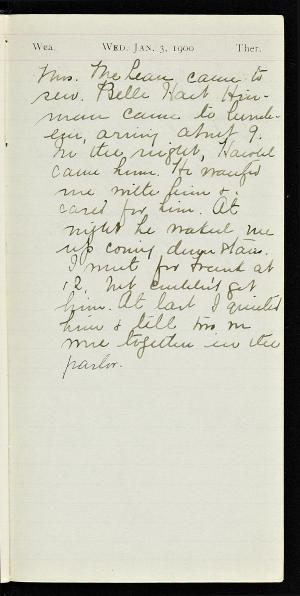 Wea. WED. JAN. 3, 1900 Ther.
Mrs. McLean came to
sew. Belle Hart Hin-
man came to lunch-
eon, about 9.
In the night, Harold
came home. He wanted
me with him &
cared for him. At
night he waked me
up coming down stairs.
I went for Frank at
12, but couldn't get
him. At last I quieted
him & in
me together in the
parlor.